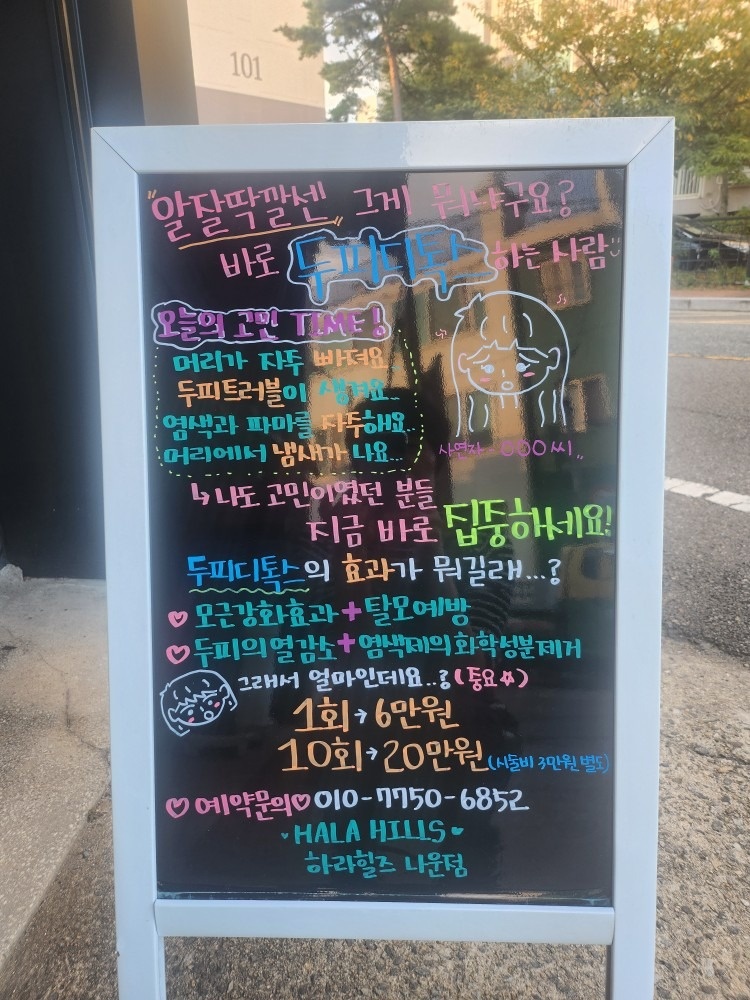 101
"알잘딱깔센" 그게 뭐냐구요?
바로 두피디톡스 하는 사람
오늘의 고민 TIME!
머리가 자주 빠져요..
두피트러블이 생겨요..
염색과 파마를 자주해요..
머리에서 냄새가 나요...
사연자 - OOO씨..
↳나도 고민이였던 분들
지금 바로 집중하세요!
두피디톡스의 효과가 뭐길래...?
♡ 모근강화효과 + 탈모예방
♡ 두피의열감소 + 염색제의 화학성분제거
그래서 얼마인데요..? (중요☆)
1회→6만원
10회→20만원 (시술비 3만원 별도)
♡예약문의♡ 010-7750-6852
♥HALA HILLS♥
하라힐즈 나운점